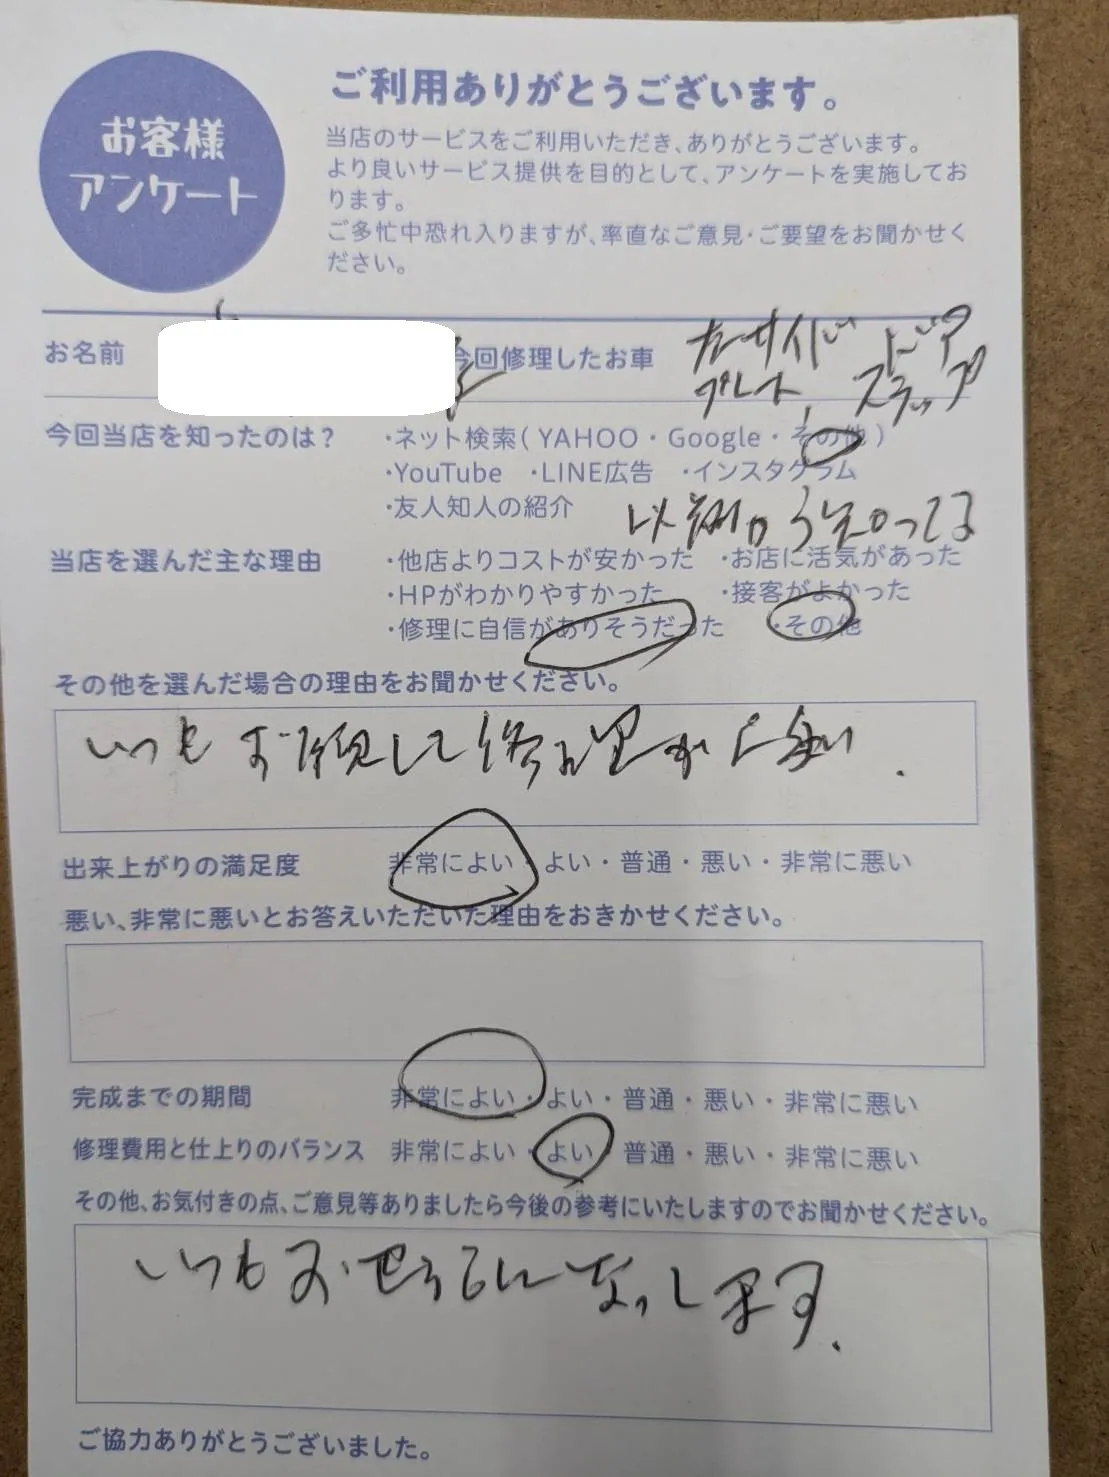 お客様
アンケート
ご利用ありがとうございます。
当店のサービスをご利用いただき、ありがとうございます。
より良いサービス提供を目的として、アンケートを実施してお
ります。
ご多忙中恐れ入りますが、率直なご意見・ご要望をお聞かせく
ださい。
お名前
今回修理したお車
カーサイド ドア
プルレスト、ストラップ
今回当店を知ったのは？ ・ネット検索( YAHOO・Google・その他 )
・YouTube ・LINE広告 ・インスタグラム
・友人知人の紹介 以前から知ってる
当店を選んだ主な理由 ・他店よりコストが安かった ・お店に活気があった
・HPがわかりやすかった ・接客がよかった
・修理に自信がありそうだった ・その他
その他を選んだ場合の理由をお聞かせください。
いつもお願いして修理が
出来上がりの満足度 非常によい・よい・普通・悪い・非常に悪い
悪い、非常に悪いとお答えいただいた理由をおきかせください。
完成までの期間 非常によい・よい・普通・悪い・非常に悪い
修理費用と仕上りのバランス 非常によい・よい・普通・悪い・非常に悪い
その他、お気付きの点、ご意見等ありましたら今後の参考にいたしますのでお聞かせください。
いつもおせわになっします.
ご協力ありがとうございました。